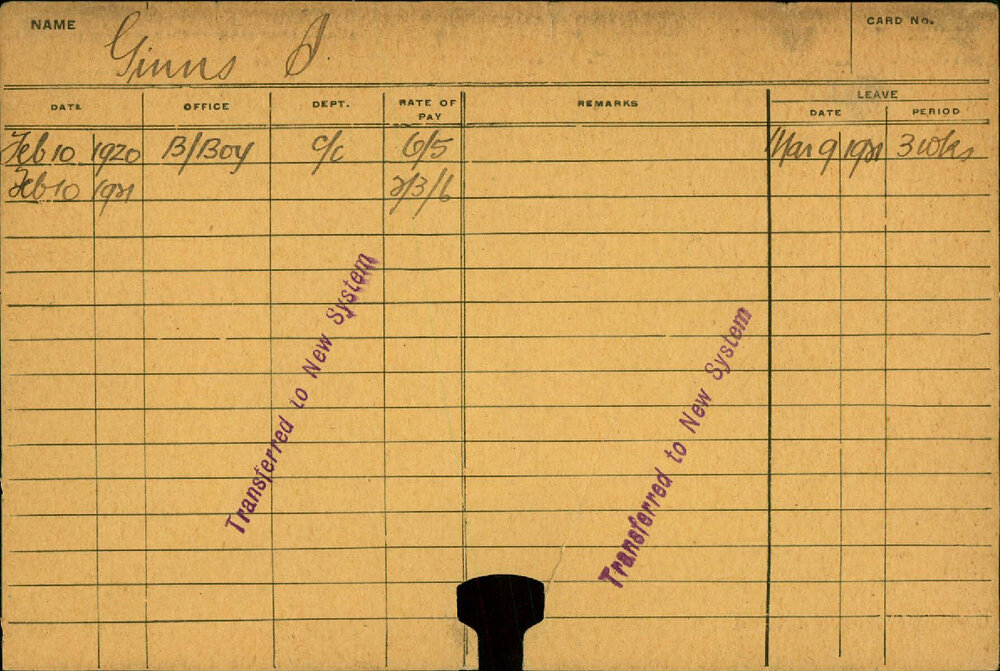 NAME Ginns J. CARD No.
DATE OFFICE DEPT. RATE OF PAY REMARKS LEAVE DATE PERIOD
Feb 10 1920 B/Boy C/C 6/5 Mar 9 1921 3 wks
Feb 10 1921 2/3/6
Transferred to New System
Transferred to New System